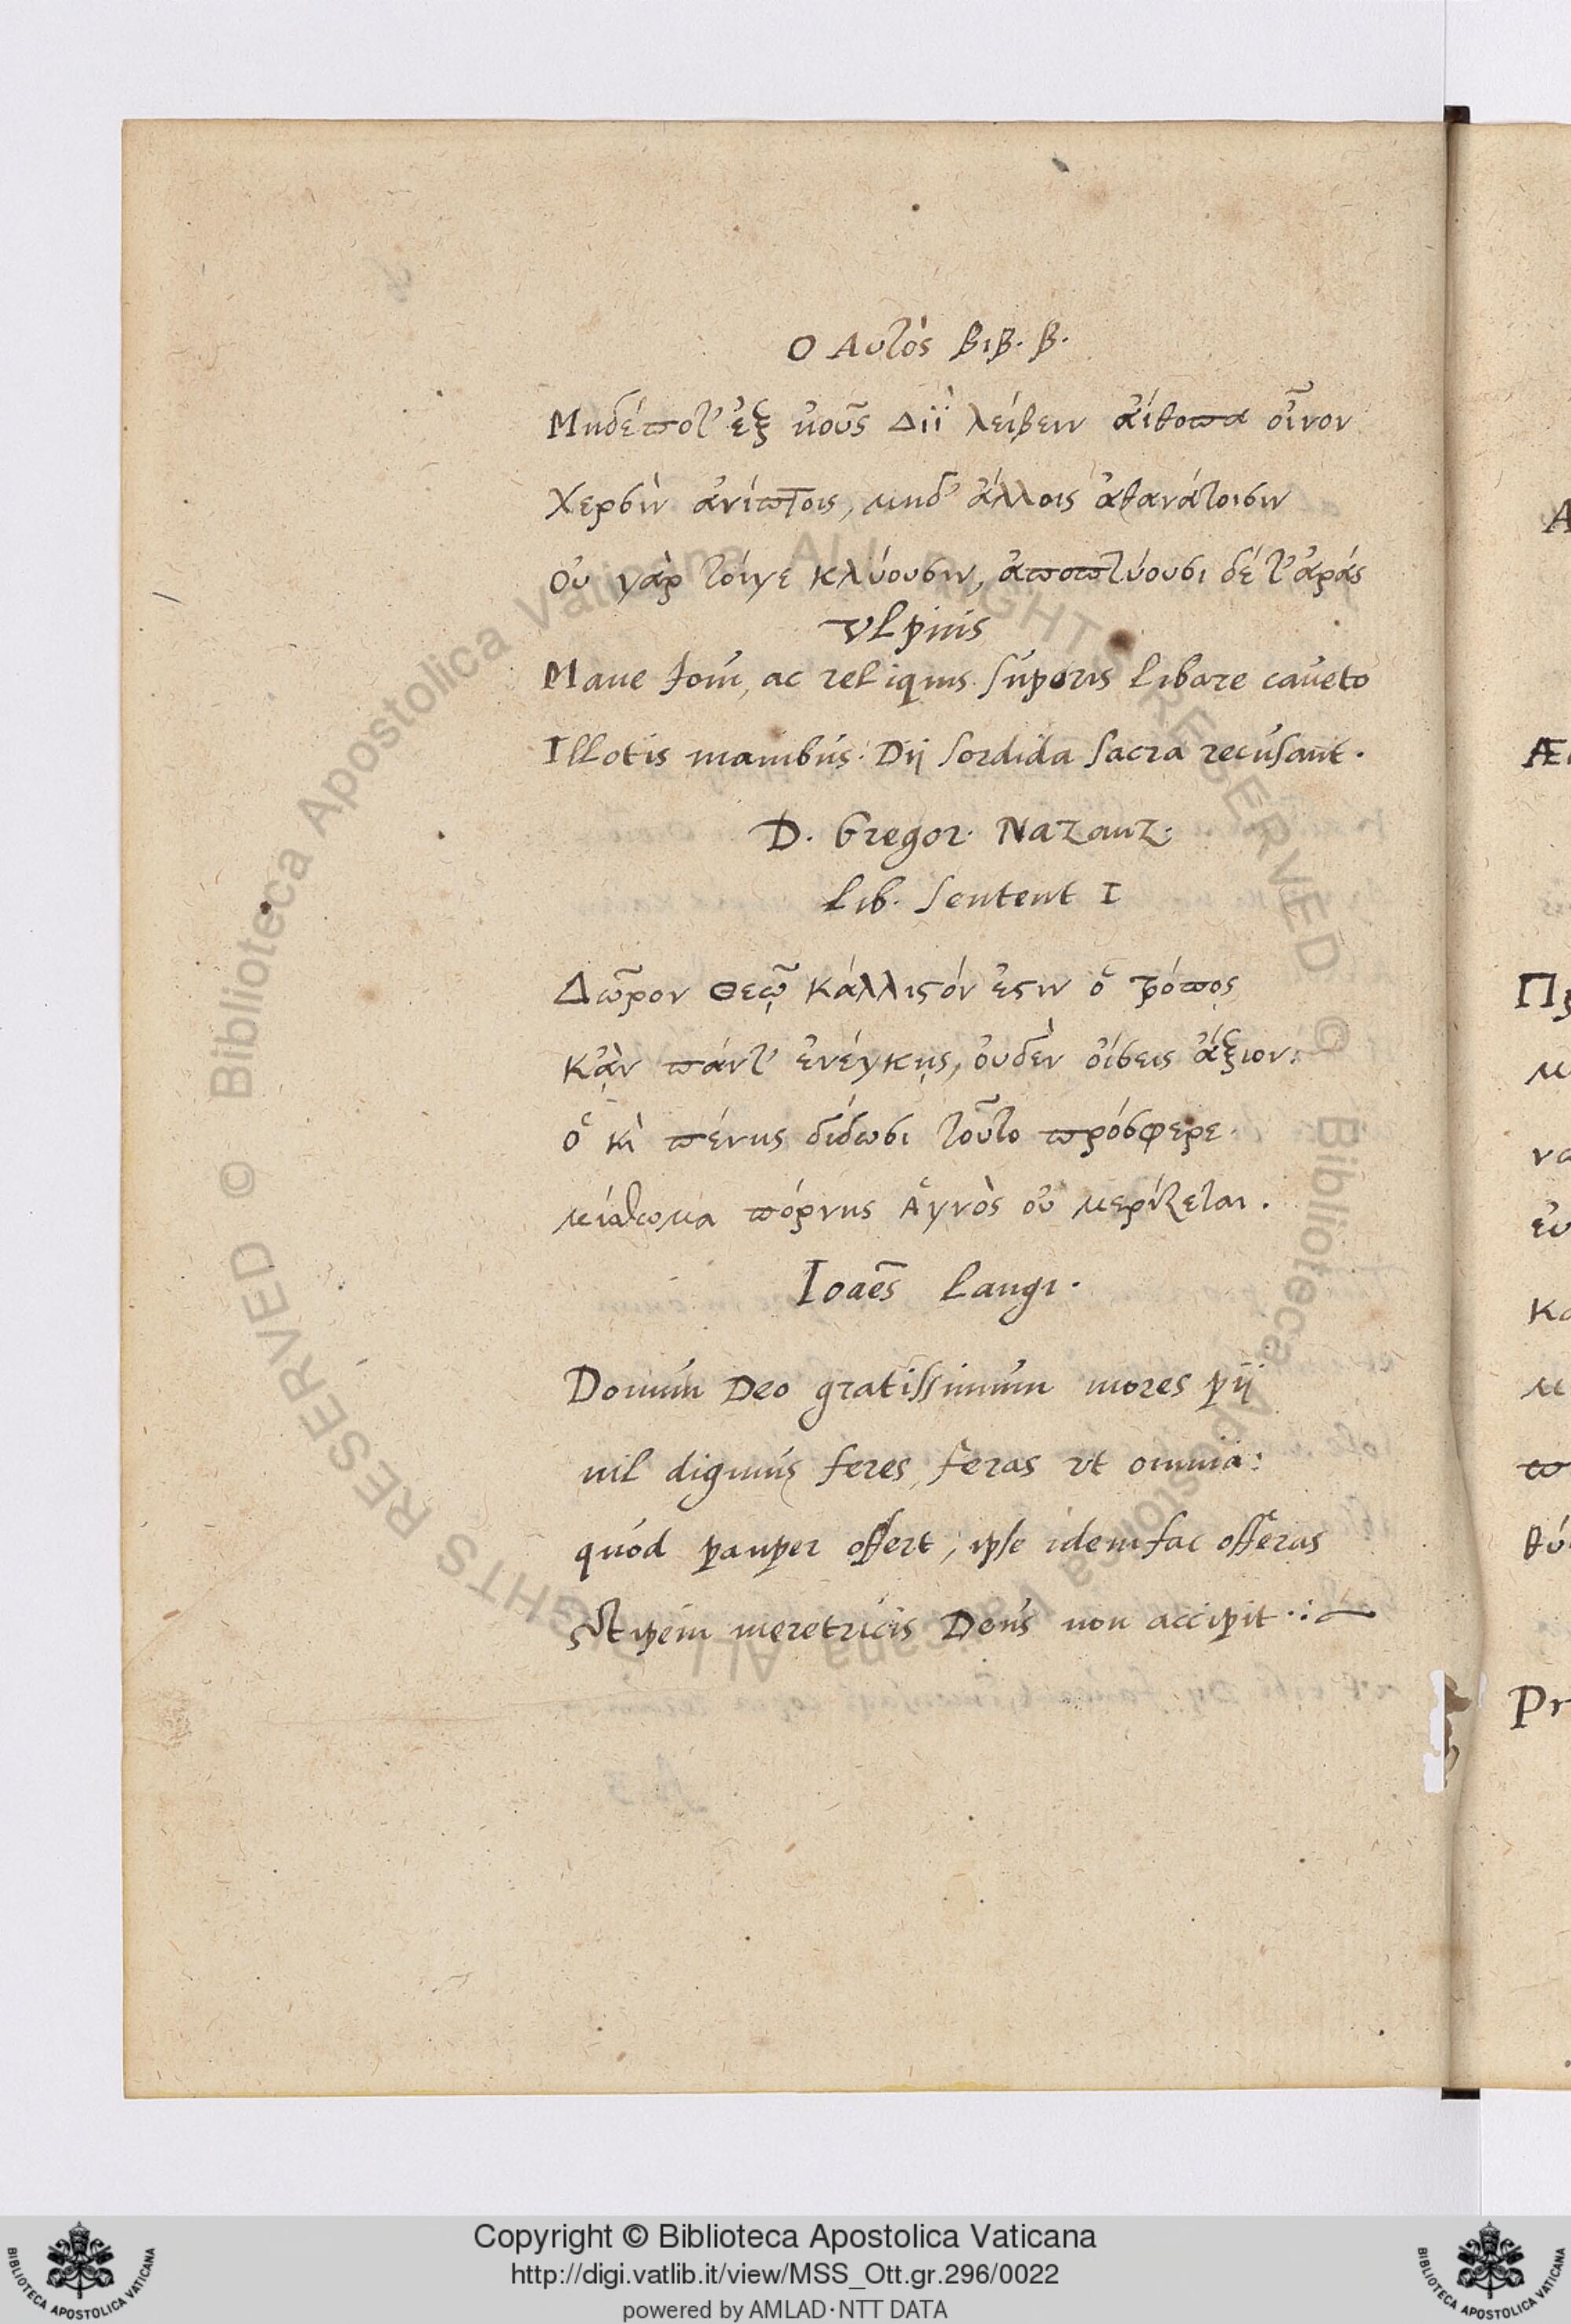 Ο Αυτὸς βιβ. β.
Μηδέποτ' ἐξ ἠοῦς Διῒ λείβειν αἴθοπα οἶνον
Χερσὶν ἀνίπτοις, μηδ' ἄλλοις ἀθανάτοισιν
Οὐ γὰρ τοίγε κλύουσιν, ἀποπτύουσι δέ τ' ἀράς
Vlpius
Mane Ioui, ac reliquis superis libare caueto
Illotis manibus: Dij sordida sacra recusant.
D. Gregor. Nazanz:
Lib. Sentent I
Δῶρον Θεῷ κάλλιστόν ἐστιν ὁ τρόπος
Κᾂν πάντ' ἐνέγκῃς, οὐδὲν οἴσεις ἄξιον:
ὃ κὶ πένης δίδωσι τοῦτο πρόσφερε.
μίσθωμα πόρνης Ἁγνὸς οὐ μερίζεται.
Ioaēs Langi.
Donum Deo gratissimum mores pij
nil dignius feres, feras vt omnia:
quod pauper offert, ipse idem fac offeras
Stipem meretricis Deus non accipit.:
A
Æ
Π
μ
να
ἐυ
Κα
μ
π
θύ
Pr
Biblioteca Apostolica Vaticana ALL RIGHTS RESERVED ©
Biblioteca Apostolica Vaticana ALL RIGHTS RESERVED ©
Copyright © Biblioteca Apostolica Vaticana
http://digi.vatlib.it/view/MSS_Ott.gr.296/0022
powered by AMLAD·NTT DATA
BIBLIOTECA APOSTOLICA VATICANA
BIBLIOTECA APOSTOLICA VATICANA